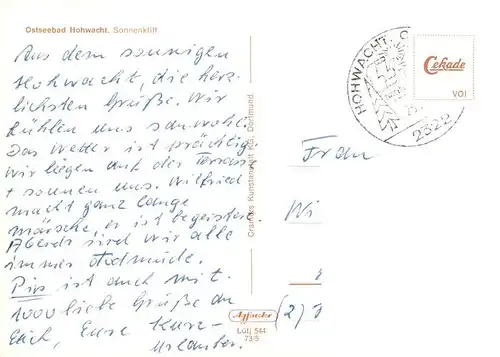 Ostseebad Hohwacht. Sonnenklift
Aus dem sonnigen
Hohwacht, die herz-
lichsten Grüße. Wir
fühlen uns sauwohl.
Das Wetter ist prächtig
wir liegen auf der Terrasse
+ sonnen uns. Wilfried
macht ganz lange
märsche, er ist begeistert.
Abends sind wir alle
immer todmüde.
Pips ist auch mit.
1000 liebe Grüße an
Euch, Eure Kurz-
urlauber.
Graphos Kunstanstalt Dortmund.
HOHWACHT
2322
Cekade
VOI
Frau
Wi
(2)
Agfacolor
Lütj 544
73/5